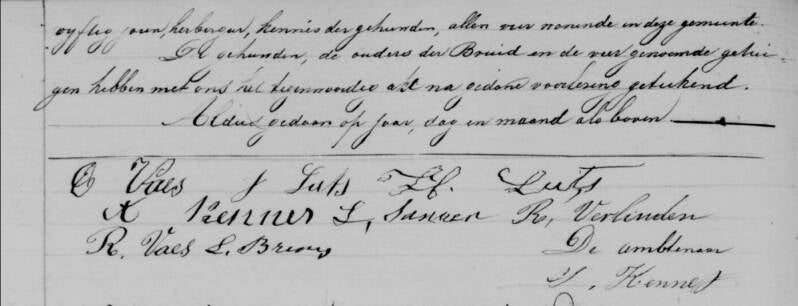 vyftig jaren, herberger, kennis der gehuwden, allen vier wonende in deze gemeente.
De gehuwden, de ouders der Bruid en de vier genoemde getui-
gen hebben met ons het tegenwoordig akt na gedane voorlezing geteekend.
Aldus gedaan op jaar, dag en maand als boven
Vaes J Luts Luts
A Kenner L, Jansen R, Verlinden
R. Vaes L. De ambtenaar